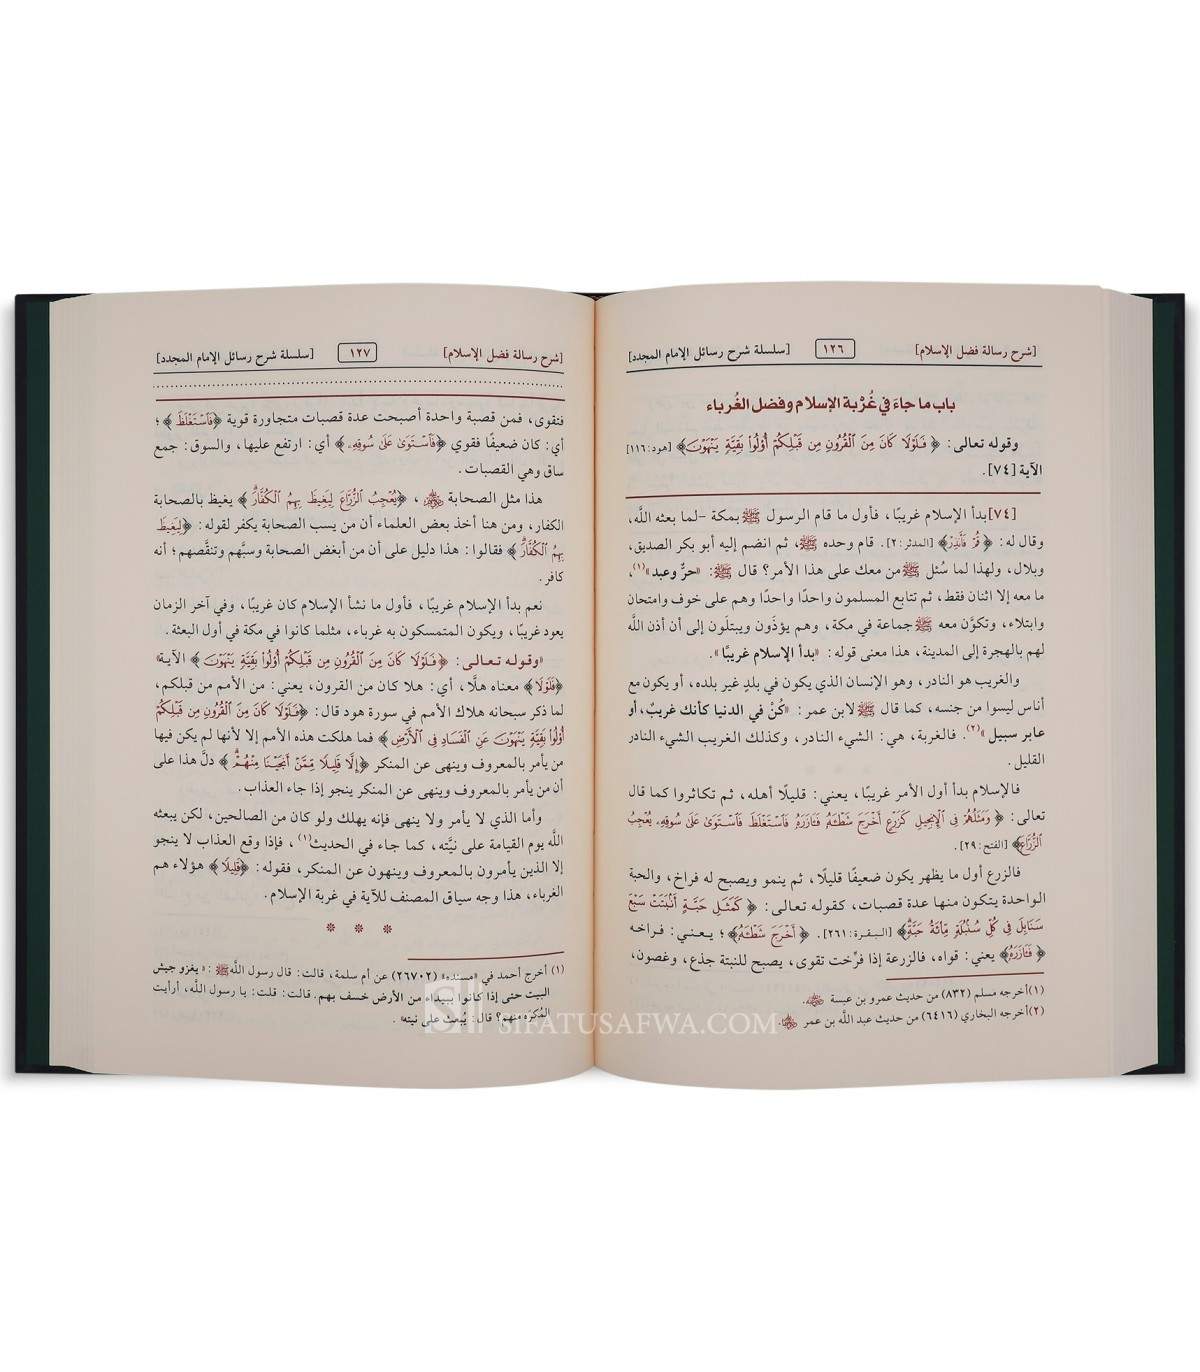 [شرح رسالة فضل الإسلام] ١٢٦ [سلسلة شرح رسائل الإمام المجدد]
باب ما جاء في غُرْبة الإسلام وفضل الغُرباء
وقوله تعالى: ﴿ فَلَوْلَا كَانَ مِنَ ٱلْقُرُونِ مِن قَبْلِكُمْ أُوْلُواْ بَقِيَّةٍ يَنْهَوْنَ﴾ [هود:١١٦]
الآية [٧٤].
[٧٤]بدأ الإسلام غريبًا، فأول ما قام الرسول ﷺ بمكة -لما بعثه الله،
وقال له: ﴿ قُمْ فَأَنذِرْ﴾ [المدثر:٢]. قام وحده ﷺ، ثم انضم إليه أبو بكر الصديق،
وبلال، ولهذا لما سُئل ﷺ من معك على هذا الأمر؟ قال ﷺ: «حرٌّ وعبد»(١)،
ما معه إلا اثنان فقط، ثم تتابع المسلمون واحدًا واحدًا وهم على خوف وامتحان
وابتلاء، وتكوَّن معه ﷺ جماعة في مكة، وهم يؤذَون ويبتلَون إلى أن أذن الله
لهم بالهجرة إلى المدينة، هذا معنى قوله: «بدأ الإسلام غريبًا».
والغريب هو النادر، وهو الإنسان الذي يكون في بلدٍ غير بلده، أو يكون مع
أناس ليسوا من جنسه، كما قال ﷺ لابن عمر: «كُنْ في الدنيا كأنك غريبٌ، أو
عابر سبيل»(٢). فالغربة، هي: الشيء النادر، وكذلك الغريب الشيء النادر
القليل.
فالإسلام بدأ أول الأمر غريبًا، يعني: قليلًا أهله، ثم تكاثروا كما قال
تعالى: ﴿ وَمَثَلُهُمْ فِى ٱلْإِنجِيلِ كَزَرْعٍ أَخْرَجَ شَطْـَٔهُۥ فَـَٔازَرَهُۥ فَٱسْتَغْلَظَ فَٱسْتَوَىٰ عَلَىٰ سُوقِهِۦ يُعْجِبُ
ٱلزُّرَّاعَ﴾ [الفتح:٢٩].
فالزرع أول ما يظهر يكون ضعيفًا قليلًا، ثم ينمو ويصبح له فراخ، والحبة
الواحدة يتكون منها عدة قصبات، كقوله تعالى: ﴿ كَمَثَلِ حَبَّةٍ أَنۢبَتَتْ سَبْعَ
سَنَابِلَ فِى كُلِّ سُنۢبُلَةٍ مِّا۟ئَةُ حَبَّةٍ﴾ [البقرة:٢٦١]. ﴿ أَخْرَجَ شَطْـَٔهُۥ﴾؛ يعني: فراخه
﴿ فَـَٔازَرَهُۥ﴾ يعني: قواه، فالزرعة إذا فرِّخت تقوى، يصبح للنبتة جذع، وغصون،
(١)أخرجه مسلم (٨٣٢) من حديث عمرو بن عبسة رضي الله عنه.
(٢)أخرجه البخاري (٦٤١٦) من حديث عبد الله بن عمر رضي الله عنهما.
[شرح رسالة فضل الإسلام] ١٢٧ [سلسلة شرح رسائل الإمام المجدد]
فتقوى، فمن قصبة واحدة أصبحت عدة قصبات متجاورة قوية ﴿فَٱسْتَغْلَظَ ﴾؛
أي: كان ضعيفًا فقوي ﴿فَٱسْتَوَىٰ عَلَىٰ سُوقِهِۦ ﴾ أي: ارتفع عليها، والسوق: جمع
ساق وهي القصبات.
هذا مثل الصحابة رضي الله عنهم، ﴿يُعْجِبُ ٱلزُّرَّاعَ لِيَغِيظَ بِهِمُ ٱلْكُفَّارَ ﴾ يغيظ بالصحابة
الكفار، ومن هنا أخذ بعض العلماء أن من يسب الصحابة يكفر لقوله: ﴿لِيَغِيظَ
بِهِمُ ٱلْكُفَّارَ ﴾ فقالوا: هذا دليل على أن من أبغض الصحابة وسبَّهم وتنقَّصهم؛ أنه
كافر.
نعم بدأ الإسلام غريبًا، فأول ما نشأ الإسلام كان غريبًا، وفي آخر الزمان
يعود غريبًا، ويكون المتمسكون به غرباء، مثلما كانوا في مكة في أول البعثة.
«وقوله تعالى: ﴿ فَلَوْلَا كَانَ مِنَ ٱلْقُرُونِ مِن قَبْلِكُمْ أُوْلُواْ بَقِيَّةٍ يَنْهَوْنَ ﴾ الآية»
﴿فَلَوْلَا ﴾ معناه هلَّا، أي: هلا كان من القرون، يعني: من الأمم من قبلكم،
لما ذكر سبحانه هلاك الأمم في سورة هود قال: ﴿فَلَوْلَا كَانَ مِنَ ٱلْقُرُونِ مِن قَبْلِكُمْ
أُوْلُواْ بَقِيَّةٍ يَنْهَوْنَ عَنِ ٱلْفَسَادِ فِى ٱلْأَرْضِ ﴾ فما هلكت هذه الأمم إلا لأنها لم يكن فيها
من يأمر بالمعروف وينهى عن المنكر ﴿إِلَّا قَلِيلًا مِّمَّنْ أَنجَيْنَا مِنْهُمْ ﴾ دلَّ هذا على
أن من يأمر بالمعروف وينهى عن المنكر ينجو إذا جاء العذاب.
وأما الذي لا يأمر ولا ينهى فإنه يهلك ولو كان من الصالحين، لكن يبعثه
الله يوم القيامة على نيَّته، كما جاء في الحديث(١)، فإذا وقع العذاب لا ينجو
إلا الذين يأمرون بالمعروف وينهون عن المنكر، فقوله: ﴿قَلِيلًا ﴾ هؤلاء هم
الغرباء، هذا وجه سياق المصنف للآية في غربة الإسلام.
* * *
(١) أخرج أحمد في «مسنده» (٢٦٧٠٢) عن أم سلمة، قالت: قال رسول الله ﷺ: «يغزو جيش
البيت حتى إذا كانوا ببيداء من الأرض خسف بهم. قالت: قلت: يا رسول الله، أرأيت
المُكرَه منهم؟ قال: يُبعث على نيته».
SIFATUSAFWA.COM